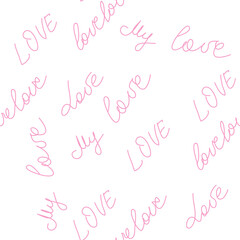 LOVE
lovelove
My
love
velove
Love
love
LOVE
love
My
LOVE
lovelo
My
LOVE
lovelove
Love